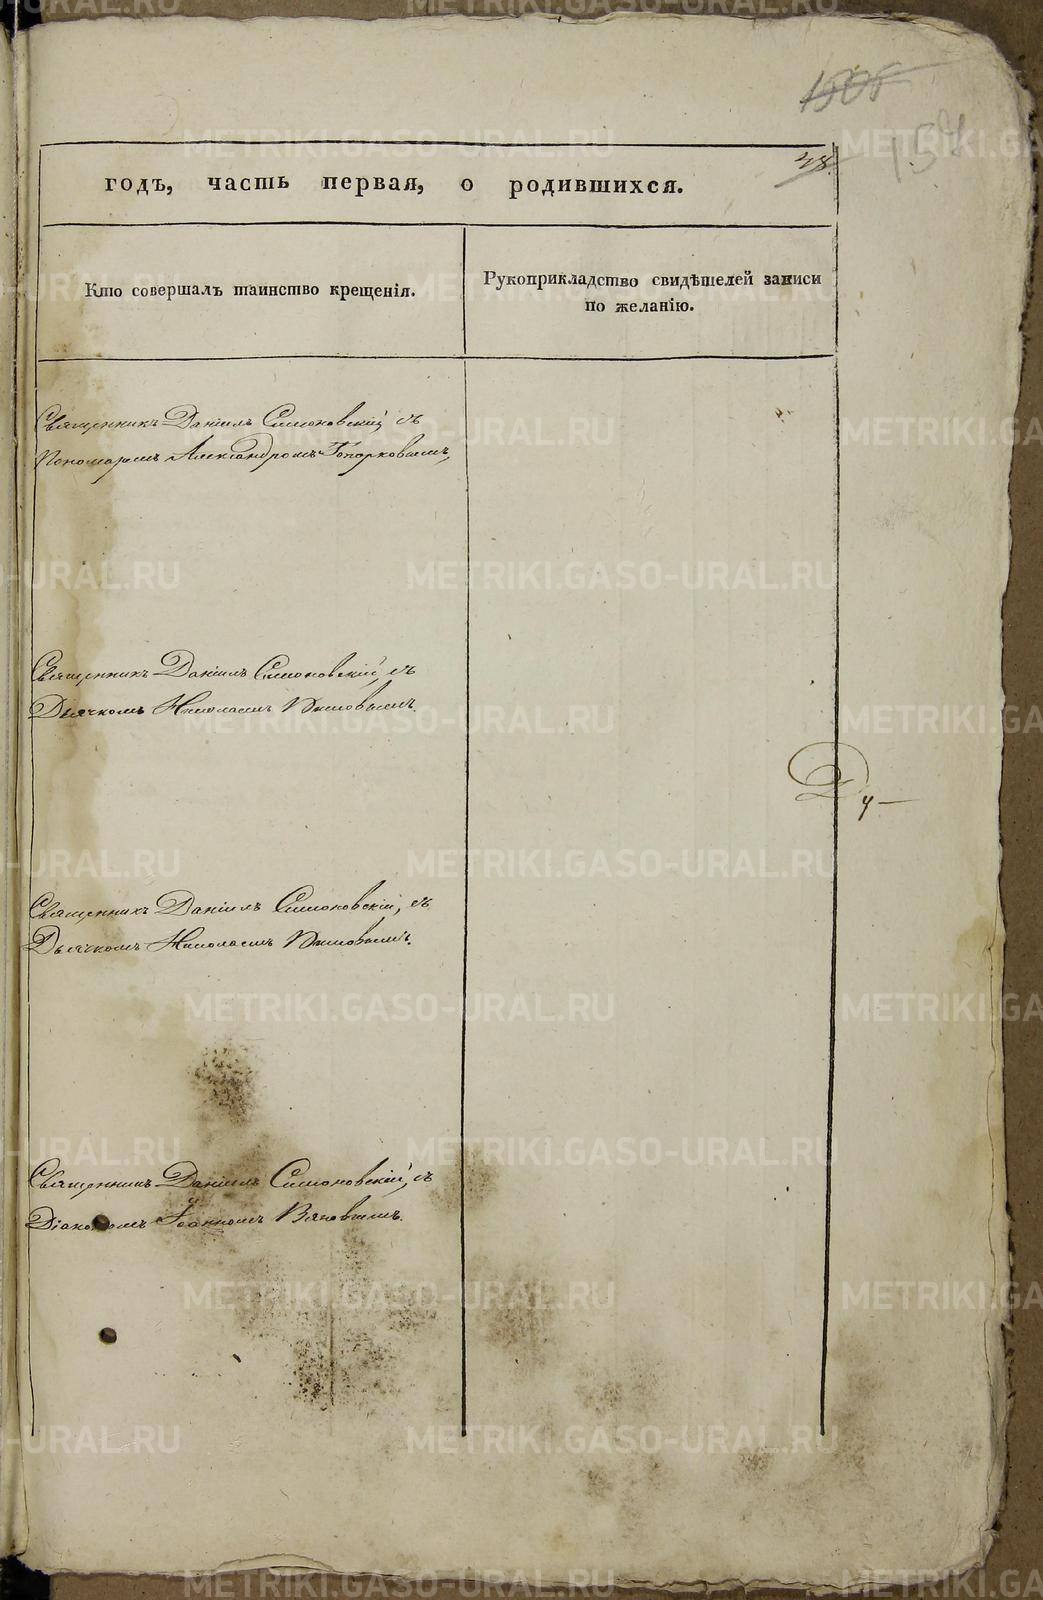 годъ, часть первая, о родившихся.
Кто совершалъ таинство крещенія.
Рукоприкладство свидѣтелей записи
по желанію.
Священникъ Даніилъ Симоновскій, съ
Пономаремъ Александромъ Топорковымъ,
Священникъ Даніилъ Симоновскій, съ
Дьячкомъ Николаемъ
Священникъ Даніилъ Симоновскій, съ
Дьячкомъ Николаемъ
Священникъ Даніилъ Симоновскій, съ
Діакономъ Іоанномъ
METRIKI.GASO-URAL.RU